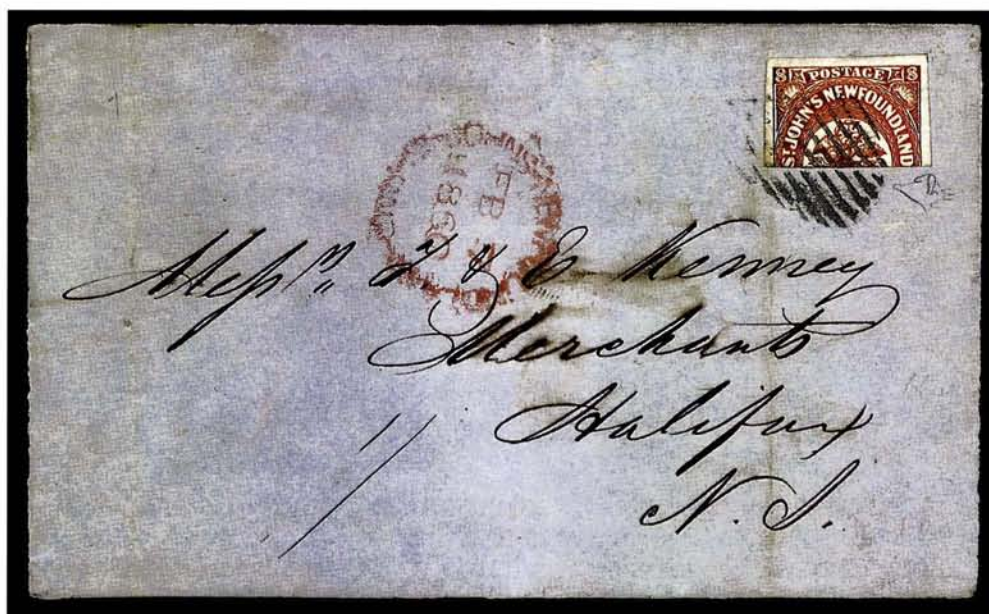 8 POSTAGE 8
ST. JOHN'S NEWFOUNDLAND
FB
1860
Messrs. T & E Kenney
Merchants
Halifax
N. S.